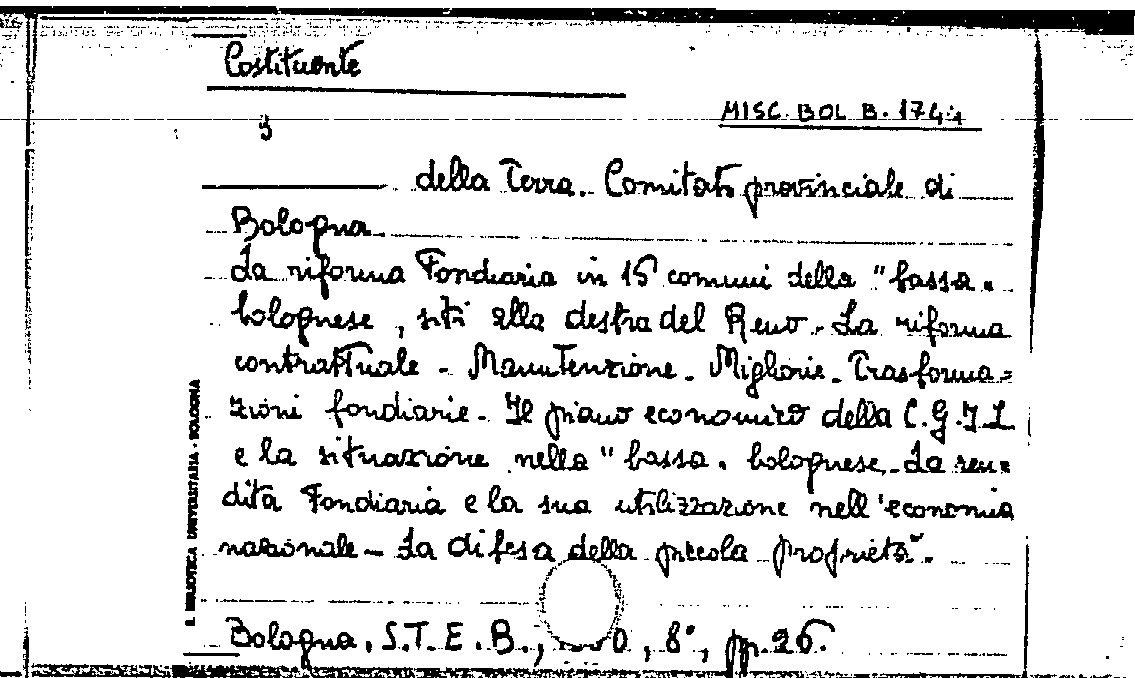 Costituente
MISC. BOL B. 1744
9
della Terra. Comitato provinciale di
Bologna
La riforma Fondiaria in 15 comuni della "bassa"
bolognese, siti alla destra del Reno. La riforma
contrattuale - Manutenzione - Migliorie - Trasforma=
zioni fondiarie - Il piano economico della C.G.I.L
e la situazione nella "bassa" bolognese - La ren=
dita Fondiaria e la sua utilizzazione nell'economia
nazionale - La difesa della piccola proprietà".
Bologna, S.T.E.B., 0, 8°, pp. 26.
BIBLIOTECA UNIVERSITARIA - BOLOGNA